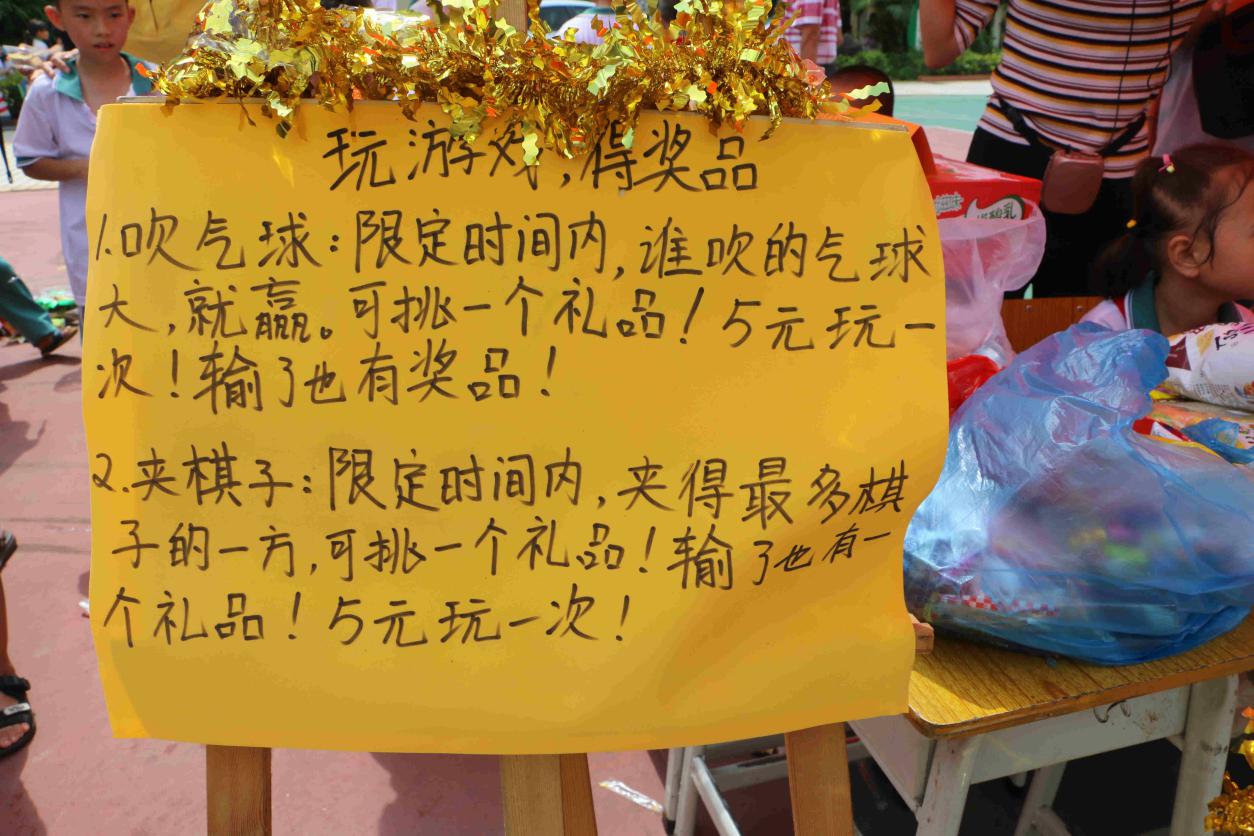 玩游戏,得奖品
1.吹气球:限定时间内,谁吹的气球
大,就赢。可挑一个礼品!5元玩一
次!输了也有奖品!
2.夹棋子:限定时间内,夹得最多棋
子的一方,可挑一个礼品!输了也有一
个礼品!5元玩一次!